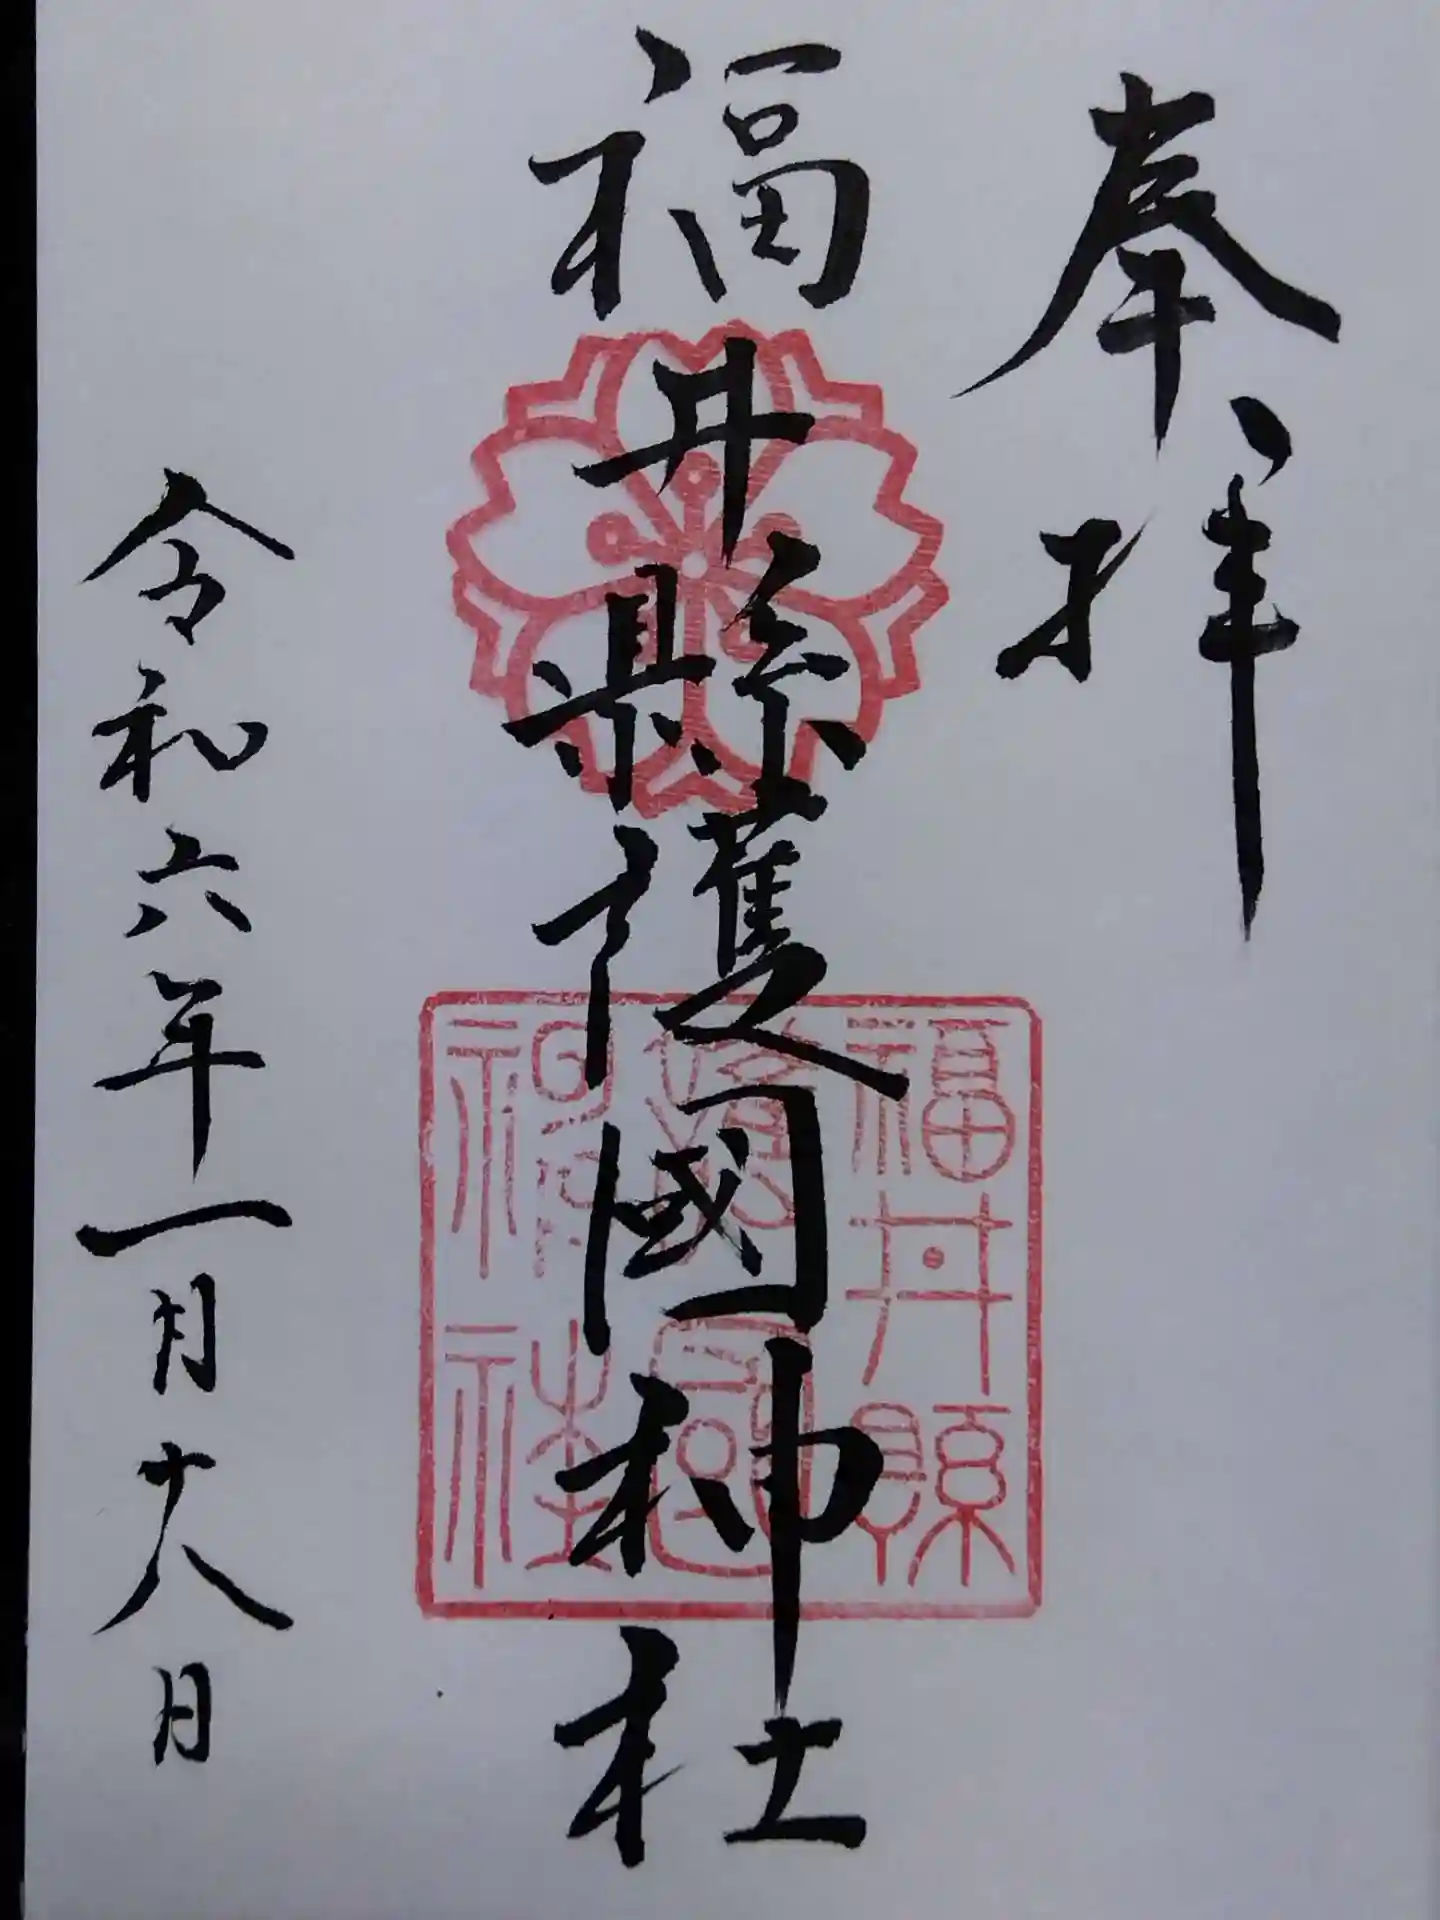 奉拝
福井縣護國神社
福井縣
護國
神社
令和六年一月十八日